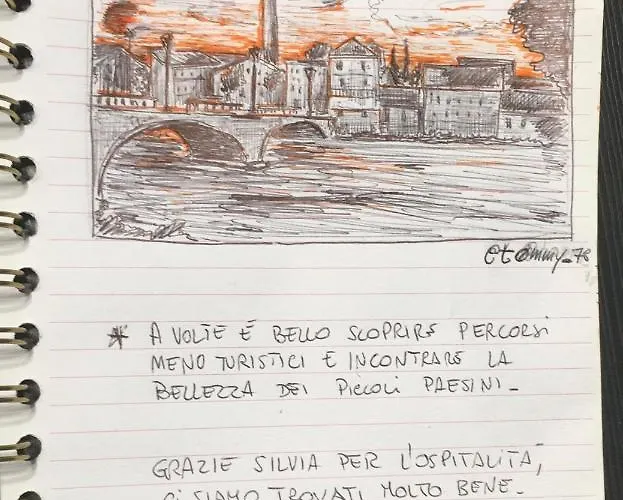 etommy_78
* A VOLTE È BELLO SCOPRIRE PERCORSI
MENO TURISTICI E INCONTRARE LA
BELLEZZA DEI PiCCOLi PAESINI_
GRAZIE SILVIA PER L'OSPITALITÀ,
Ci SIAMO TROVATI MOLTO BENE_